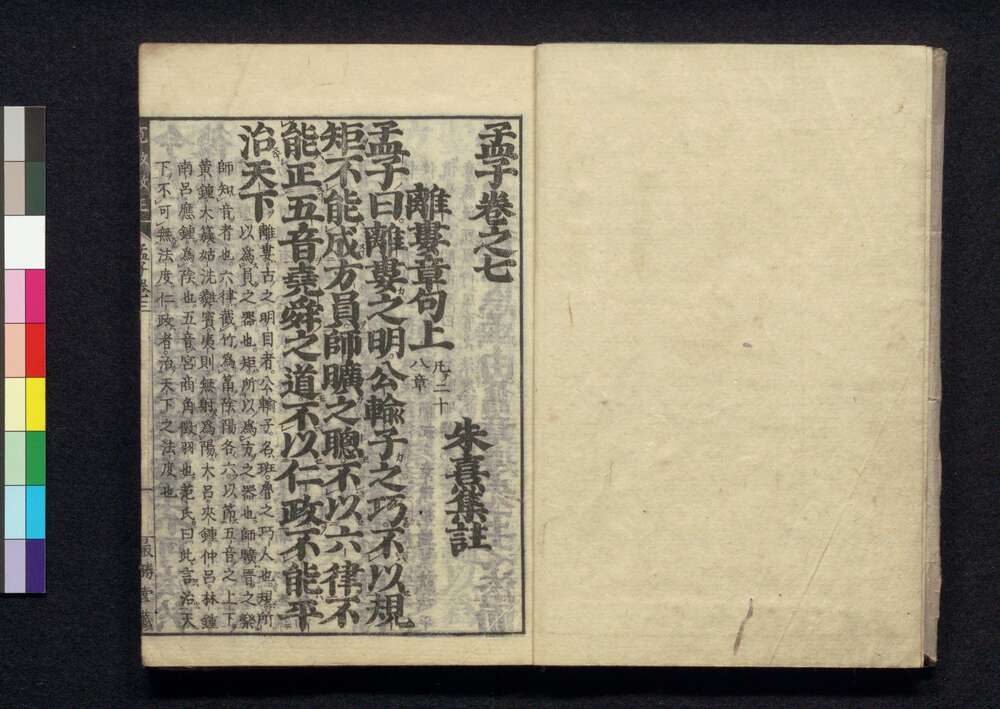 孟子卷之七
朱熹集註
離婁章句上
凡二十
八章
孟子曰離婁之明公輸子之巧不以規
矩不能成方員師曠之聰不以六律不
能正五音堯舜之道不以仁政不能平
治天下
離婁古之明目者公輸子名班魯之巧人也規所
以爲員之器也矩所以爲方之器也師曠晋之樂
師知音者也六律截竹爲筩陰陽各六以節五音之上下
黃鍾大蔟姑洗蕤賓夷則無射爲陽大呂夾鍾仲呂林鍾
南呂應鍾爲陰也五音宮商角徵羽也范氏曰此言治天
下不可無法度仁政者治天下之法度也